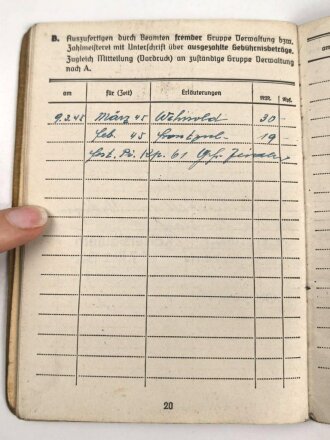 B. Auszufertigen durch Beamten fremder Gruppe Verwaltung bzw.
Zahlmeisterei mit Unterschrift über ausgezahlte Gebührnisbeträge.
Zugleich Mitteilung (Vordruck) an zuständige Gruppe Verwaltung
nach A.
am für (Zeit) Erläuterungen RM. Rpf.
9.3.45 März 45 Wehrsold 30 -
Feb. 45 Frontzul. 19 -
Kp. 61
20